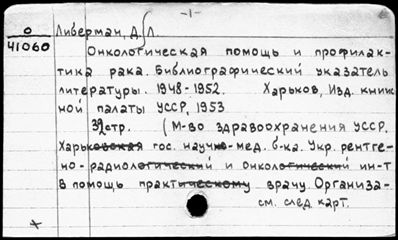 -1-
О Либерман, Д. Л.
41060
Онкологическая помощь и профилак-
тика рака. Библиографический указатель
литературы. 1948-1952. Харьков, Изд. книж
ной палаты УССР, 1953
32стр. (М-во здравоохранения УССР.
Харьковская гос. научно-мед. б-ка. Укр. рентге-
но-радиологический и онкологический ин-т
В помощь практическому врачу. Организа-
см. след карт.